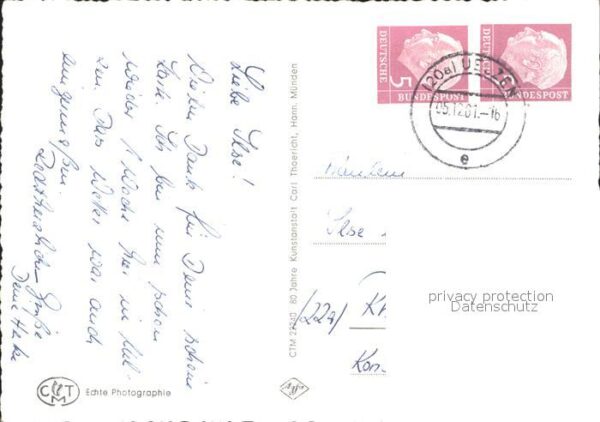 Liebe Ilse!
Vielen Dank für Deine schöne
Karte. Ich bin nun schon
wieder 1 Woche hier in Uel-
zen. Das Wetter war auch
einigermaßen.
Herzliche Grüße
Deine
DEUTSCHE
5
BUNDESPOST
DEUTSCHE
BUNDESPOST
(20a) UELZEN
05.12.61.-16
e
Fräulein
Ilse
/22a/ K
Kon
privacy protection
Datenschutz
CTM 22240 80 Jahre Kunstanstalt Carl Thoericht, Hann. Münden
CTM
Echte Photographie
Agfa